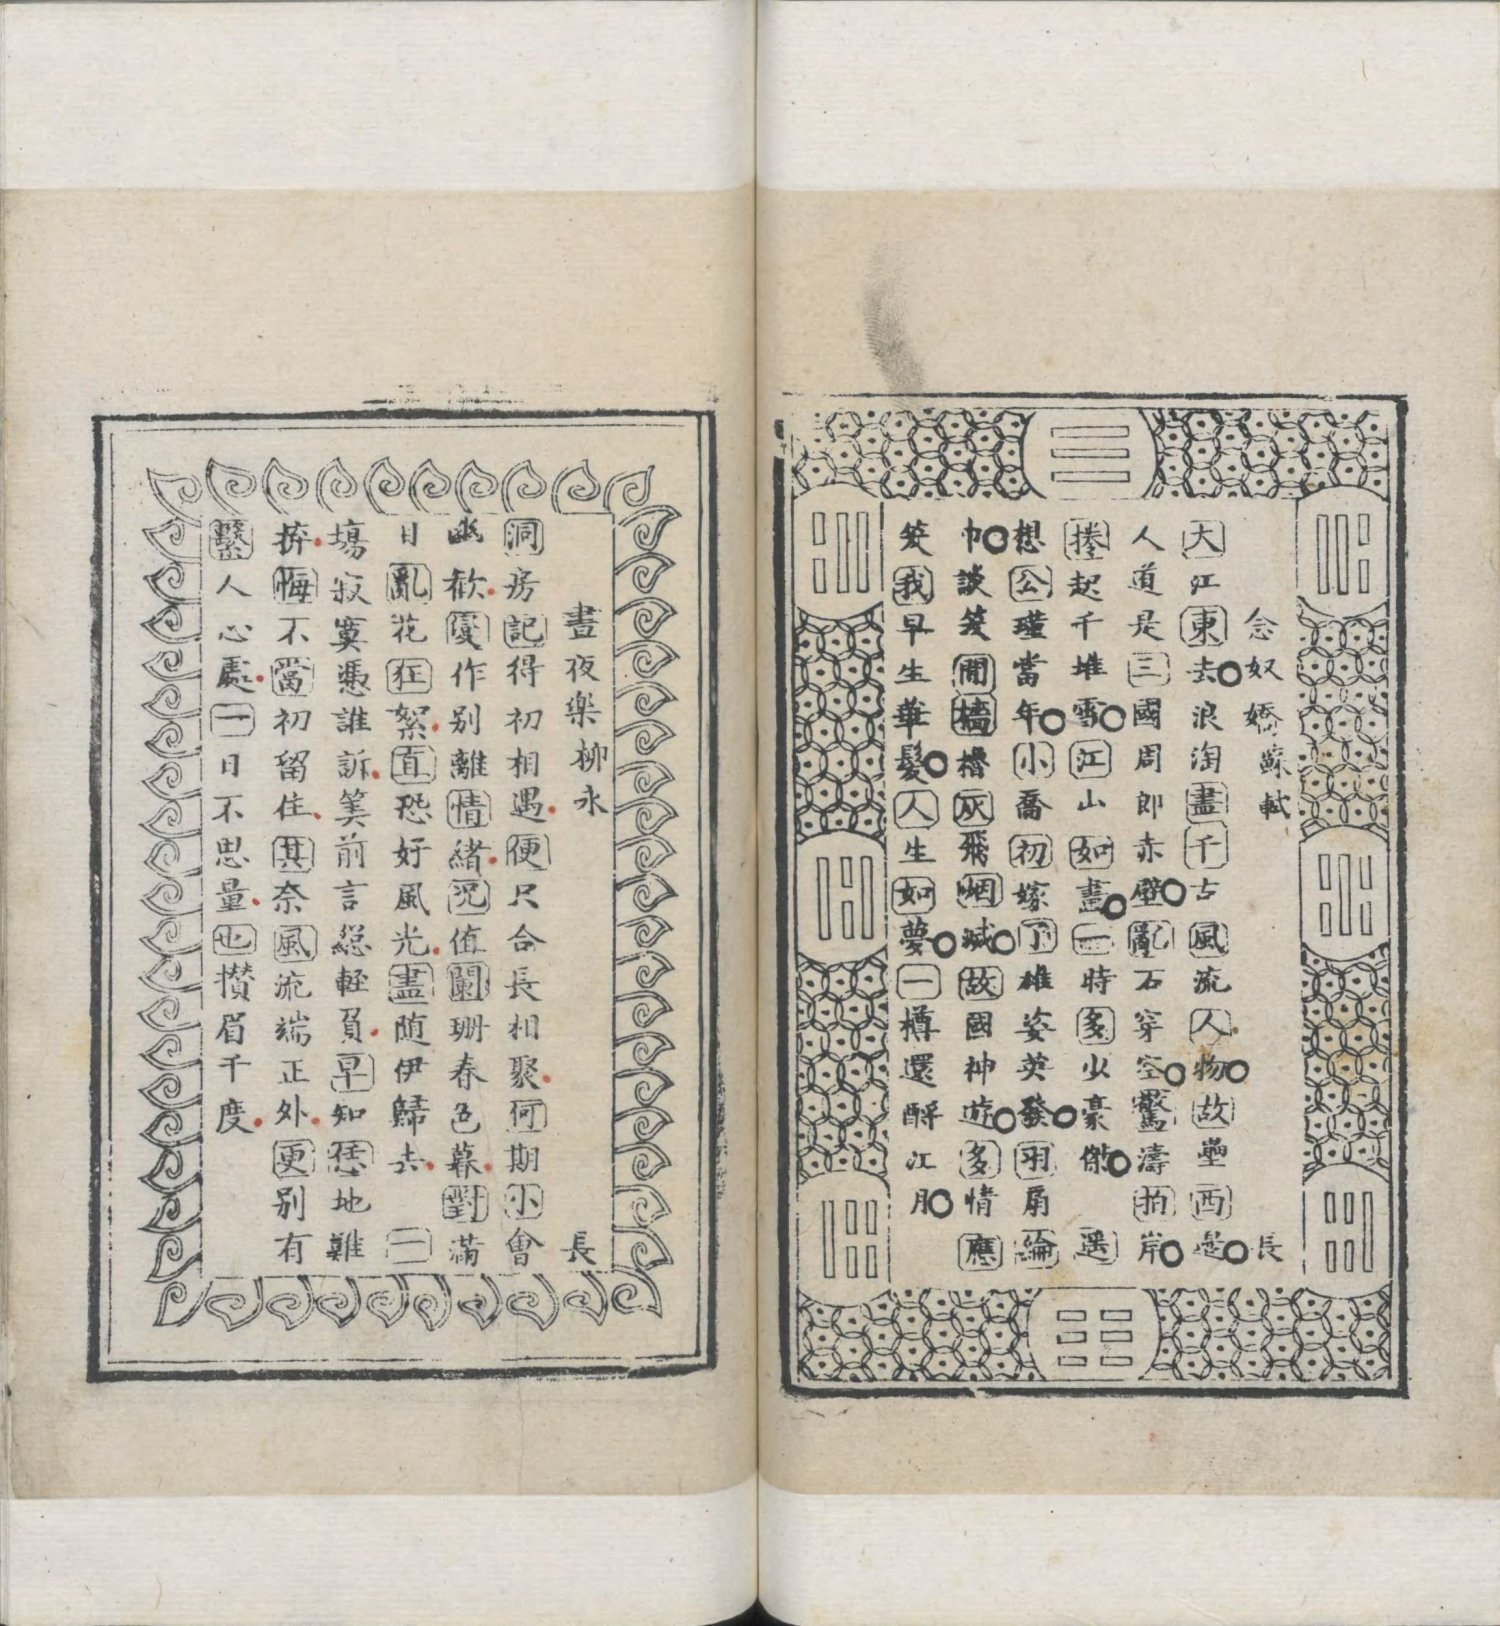 念奴嬌 蘇軾 長
大江東去浪淘盡千古風流人物故壘西邊
人道是三國周郎赤壁亂石穿空驚濤拍岸
捲起千堆雪江山如畫一時多少豪傑 遥
想公瑾當年小喬初嫁了雄姿英發羽扇綸
巾談笑間檣櫓灰飛烟滅故國神遊多情應
笑我早生華髮人生如夢一樽還酹江月
晝夜樂 柳永 長
洞房記得初相遇便只合長相聚何期小會
幽歡變作别離情緒況值闌珊春色暮對滿
目亂花狂絮直恐好風光盡随伊歸去 一
塲寂寞憑誰訴筭前言緫輕負早知恁地難
拚悔不當初留住其奈風流端正外更别有
繫人心處一日不思量也攢眉千度